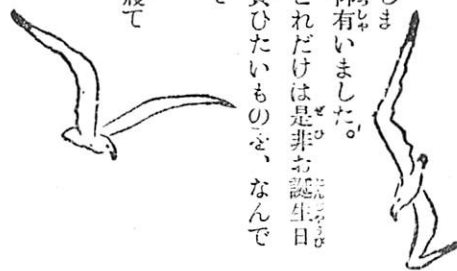 しま
有いました。
これだけは是非お誕生日
ひたいものを、なんで
て